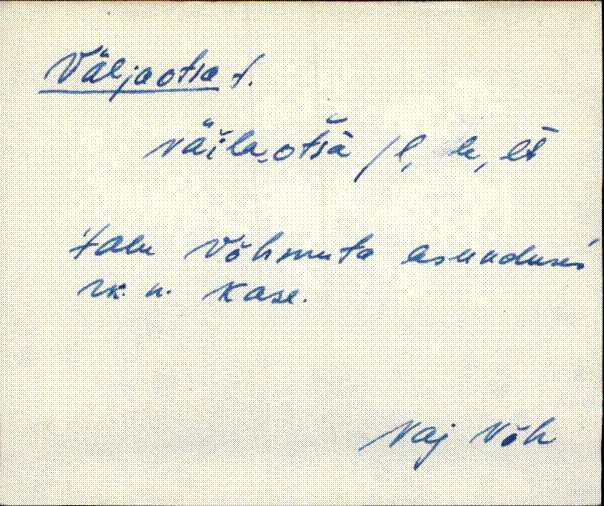 Väljaotsa t.
väi̮la-otsa /l, le, lt
talu Võhmuta asunduses
rk. n. Kase.
Vaj Võh